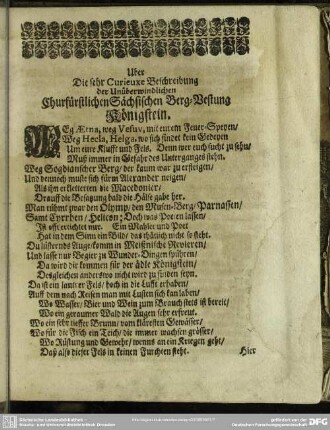 Uber
Die sehr Curieuxe Beschreibung
der Unüberwindlichen
Churfürstlichen Sächsischen Berg-Vestung
Königstein.
WEg Ætna, weg Vesuv, mit eurem Feuer-Speyen/
Weg Hecla, Helga, wo sich findet kein Gedeyen
Um eure Klufft und Fels. Denn wer euch sucht zu sehn/
Muß immer in Gefahr des Unterganges stehn.
Weg Sogdianscher Berg/ der kaum war zu ersteigen/
Und dennoch muste sich fürm Alexander neigen/
Als ihn erkletterten die Macedonier/
Drauff die Besatzung bald die Hälse gabe her.
Man rühmt zwar den Olymp/ den Musen-Berg Parnassen/
Samt Cyrrhen/ Helicon; Doch was Poeten lassen/
Ist offt errichtet nur. Ein Mahler und Poet
Hat in dem Sinn ein Bild/ das thätlich nicht so steht.
Du lüsternds Auge komm in Meißnische Revieren/
Und lasse nur Begier zu Wunder-Dingen führen/
Da wird dir kommen für der ädle Königstein/
Desgleichen anderswo nicht wird zu finden seyn.
Da ist ein lauter Fels/ hoch in die Lufft erhaben/
Auff dem nach Reisen man mit Lusten sich kan laben/
Wo Wasser/ Bier und Wein zum Gebrauch stets ist bereit/
Wo ein geraumer Wald die Augen sehr erfreut.
Wo ein sehr tieffer Brunn/ vom klärsten Gewässer/
Wo für die Fisch ein Teich/ die immer wachsen grösser/
Wo Rüstung und Gewehr/ wenns an ein Kriegen geht/
Daß also dieser Fels in keinen Furchten steht.
Hier